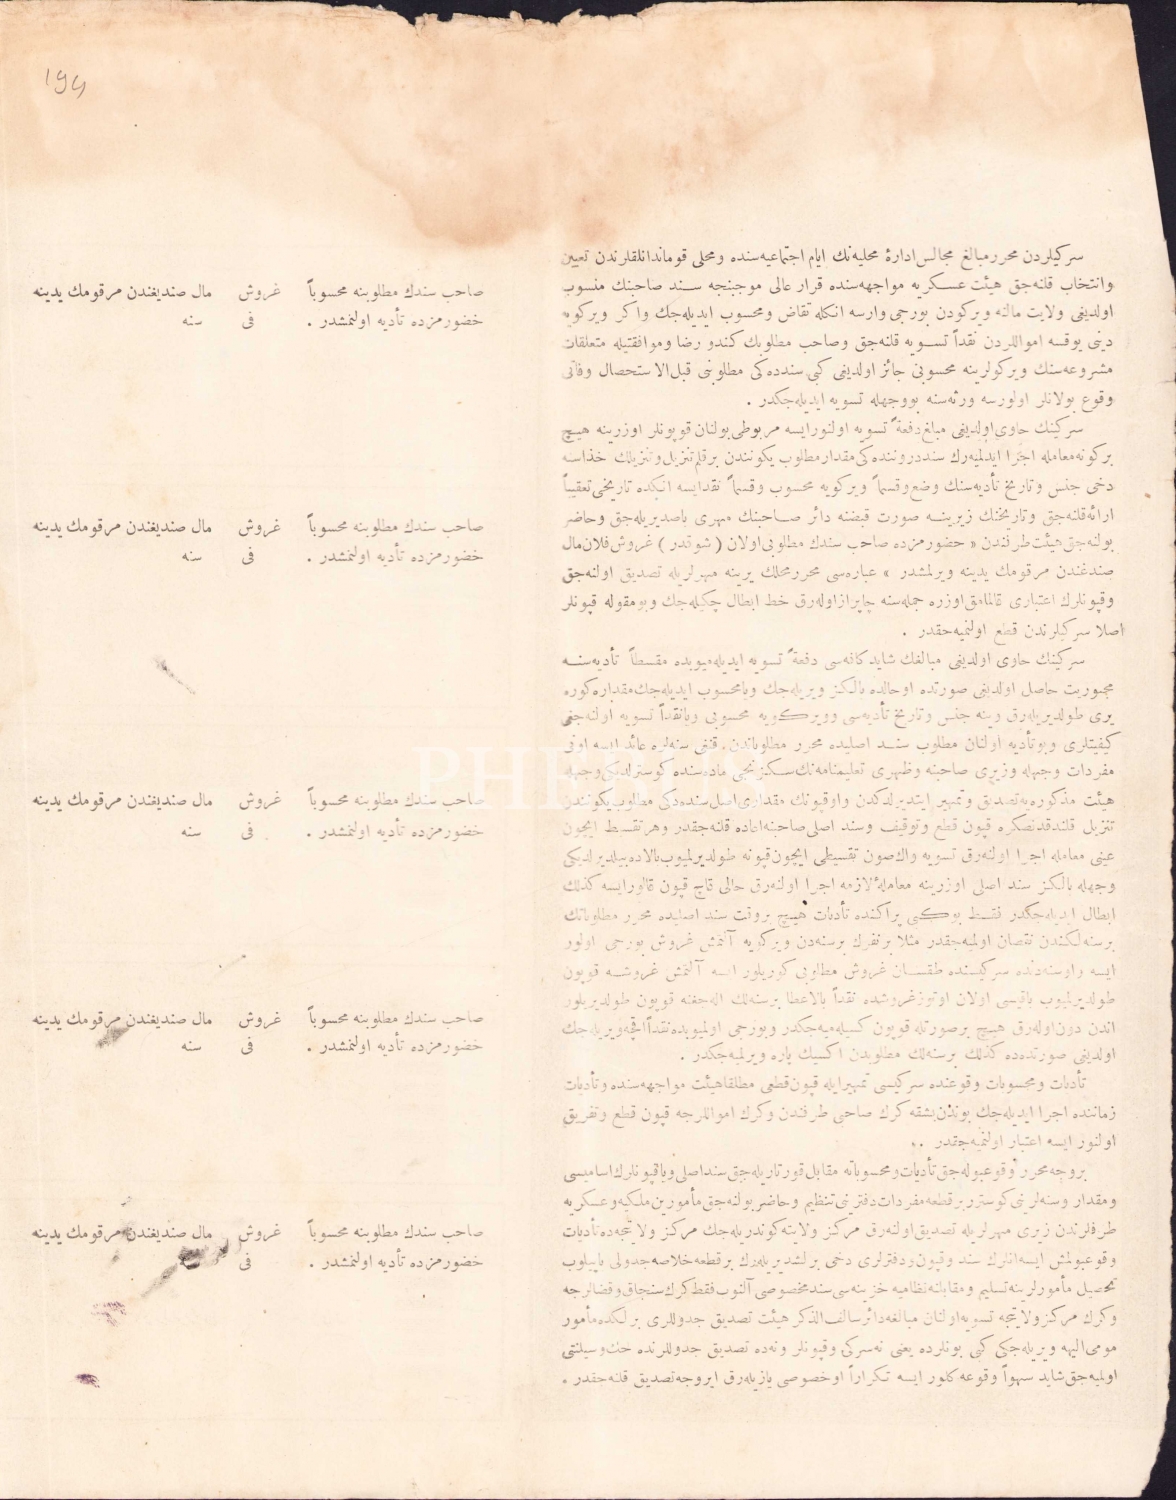 ١٩٤
سركيلردن محرر مبالغ مجالس ادارهٔ محليه‌نك ايام اجتماعيه‌سنده و محلى قوماندانلقلرندن تعيين
وانتخاب قلنه‌جق هيئت عسكريه مواجهه‌سنده قرار عالى موجبنجه سند صاحبنك منسوب
اولديغى ولايت مالنه ويركودن بورجى وارسه انكله تقاض ومحسوب ايديله‌جك واكر ويركويه
دينى يوقسه امواللردن نقداً تسويه قلنه‌جق وصاحب مطلوبك كندو رضا وموافقتيله متعلقات
مشروعه‌سنك ويركولرينه محسوبى جائز اولديغى كبى سندده‌كى مطلوبنى قبل الاستحصال وفاتى
وقوع بولانلر اولورسه ورثه‌سنه بووجهله تسويه ايديله‌جكدر .
سركينك حاوى اولديغى مبالغ دفعةً تسويه اولنور ايسه مربوطى بولنان قوپونلر اوزرينه هيچ
بركونه معامله اجرا ايدلميه‌رك سند دروننده‌كى مقدار مطلوب يكونندن برقلم تنزيل و تنزيلك حذاسنه
دخى جنس وتاريخ تأديه‌سنك وضع وقسماً ويركويه محسوب وقسماً نقدايسه انكده تاريخى تعقيباً
ارائه قلنه‌جق وتاريخنك زيرينه صورت قبضنه دائر صاحبنك مهرى باصديريله‌جق وحاضر
بولنه‌جق هيئت طرفندن « حضورمزده صاحب سندك مطلوبى اولان ( شوقدر ) غروش فلان مال
صندغندن مرقومك يدينه ويرلمشدر » عباره‌سى محرر محلك يرينه مهرلريله تصديق اولنه‌جق
وقپونلرك اعتبارى قالمامق اوزره جمله‌سنه چاپراز اوله‌رق خط ابطال چكيله‌جك وبومقوله قپونلر
اصلا سركيلرندن قطع اولنميه‌جقدر .
سركينك حاوى اولديغى مبالغك شايد كافه‌سى دفعةً تسويه ايديله‌ميوبده مقسطاً تأديه‌سنه
مجبوريت حاصل اولديغى صورتده اوحالده يالكز ويريله‌جك ويا محسوب ايديله‌جك مقداره كوره
يرى طولديريله‌رق وينه جنس وتاريخ تأديه‌سى وويركويه محسوبى ويا نقداً تسويه اولنه‌جغى
كيفيتلرى وبو تأديه اولنان مطلوب سند اصليده محرر مطلوباندن قنغى سنه‌لره عائد ايسه اوفى
مفردات وجهله وزيرى صاحبنه وظهرى تعليمنامه‌نك سكزنجى ماده‌سنده كوسترلديكى وجهله
هيئت مذكوره‌يه تصديق وتمهير ايتديرلدكدن واوقپونك مقدارى اصل سنده‌كى مطلوب يكونندن
تنزيل قلندقدنصكره قپون قطع وتوقيف وسند اصلى صاحبنه اعاده قلنه‌جقدر وهر تقسط ايچون
عينى معامله اجرا اولنه‌رق تسويه واك صون تقسيطى ايچون قپونه طولديرلميوب بالاده بيلديرلديكى
وجهله يالكز سند اصلى اوزرينه معاملهٔ لازمه اجرا اولنه‌رق حالى قاچ قپون قالور ايسه كذلك
ابطال ايديله‌جكدر فقط بوكبى پراكنده تأديات هيچ بروقت سند اصليده محرر مطلوباتك
برسنه‌لكندن نقصان اولميه‌جقدر مثلا برنفرك برسنه‌دن ويركويه آلتمش غروش بورجى اولور
ايسه واوسنه‌دنده سركيسنده طقسان غروش مطلوبى كوريلور ايسه آلتمش غروشنه قوپون
طولديرلميوب باقيسى اولان اوتوز غروشده نقداً بالاعطا برسنه‌لك اله‌جغنه قوپون طولديريلور
اندن دون اوله‌رق هيچ برصورتله قوپون كسيله‌ميه‌جكدر وبورجى اولميوبده نقداً اقچه ويريله‌جك
اولديغى صورتده‌ده كذلك برسنه‌لك مطلوبدن اكسيك پاره ويرلميه‌جكدر .
تأديات ومحسوبات وقوعنده سركيسى تمهيرايله قپون قطعى مطلقا هيئت مواجهه‌سنده وتأديات
زماننده اجرا ايديله‌جك بوندن بشقه كرك صاحبى طرفندن وكرك امواللرجه قپون قطع وتفريق
اولنور ايسه اعتبار اولنميه‌جقدر ..
بروجه محرر وقوعبوله‌جق تأديات ومحسوباته مقابل قورتاريله‌جق سند اصلى ويا قپونلرك اساميسى
ومقدار وسنه‌لرنى كوسترر برقطعه مفردات دفترينى تنظيم وحاضر بولنه‌جق مأمورين ملكيه وعسكريه
طرفلرندن زيرى مهرلريله تصديق اولنه‌رق مركز ولايته كوندريله‌جك مركز ولايتجه‌ده تأديات
وقوعبولمش ايسه انلرك سند وقپون ودفترلرى دخى برلشديريله‌رك برقطعه خلاصه جدولى ياپيلوب
تحصيل مأمورلرينه تسليم ومقابلنه نظاميه خزينه‌سى سند مخصوصى آلنوب فقط كرك سنجاق وقضالرجه
وكرك مركز ولايتجه تسويه اولنان مبالغه دائر سالف الذكر هيئت تصديق جدوللرى برلكده مأمور
مومى اليهه ويريله‌جكى كبى بونلرده يعنى نه سركى وقپونلر ونه‌ده تصديق جدوللرنده حك وسيلنتى
اولميه‌جق شايد سهواً وقوعه كلور ايسه تكراراً اوخصوصى يازيله‌رق ايروجه تصديق قلنه‌جقدر .
صاحب سندك مطلوبنه محسوباً غروش مال صنديغندن مرقومك يدينه
حضورمزده تأديه اولنمشدر . فى سنه
صاحب سندك مطلوبنه محسوباً غروش مال صنديغندن مرقومك يدينه
حضورمزده تأديه اولنمشدر . فى سنه
صاحب سندك مطلوبنه محسوباً غروش مال صنديغندن مرقومك يدينه
حضورمزده تأديه اولنمشدر . فى سنه
صاحب سندك مطلوبنه محسوباً غروش مال صنديغندن مرقومك يدينه
حضورمزده تأديه اولنمشدر . فى سنه
صاحب سندك مطلوبنه محسوباً غروش مال صنديغندن مرقومك يدينه
حضورمزده تأديه اولنمشدر . فى